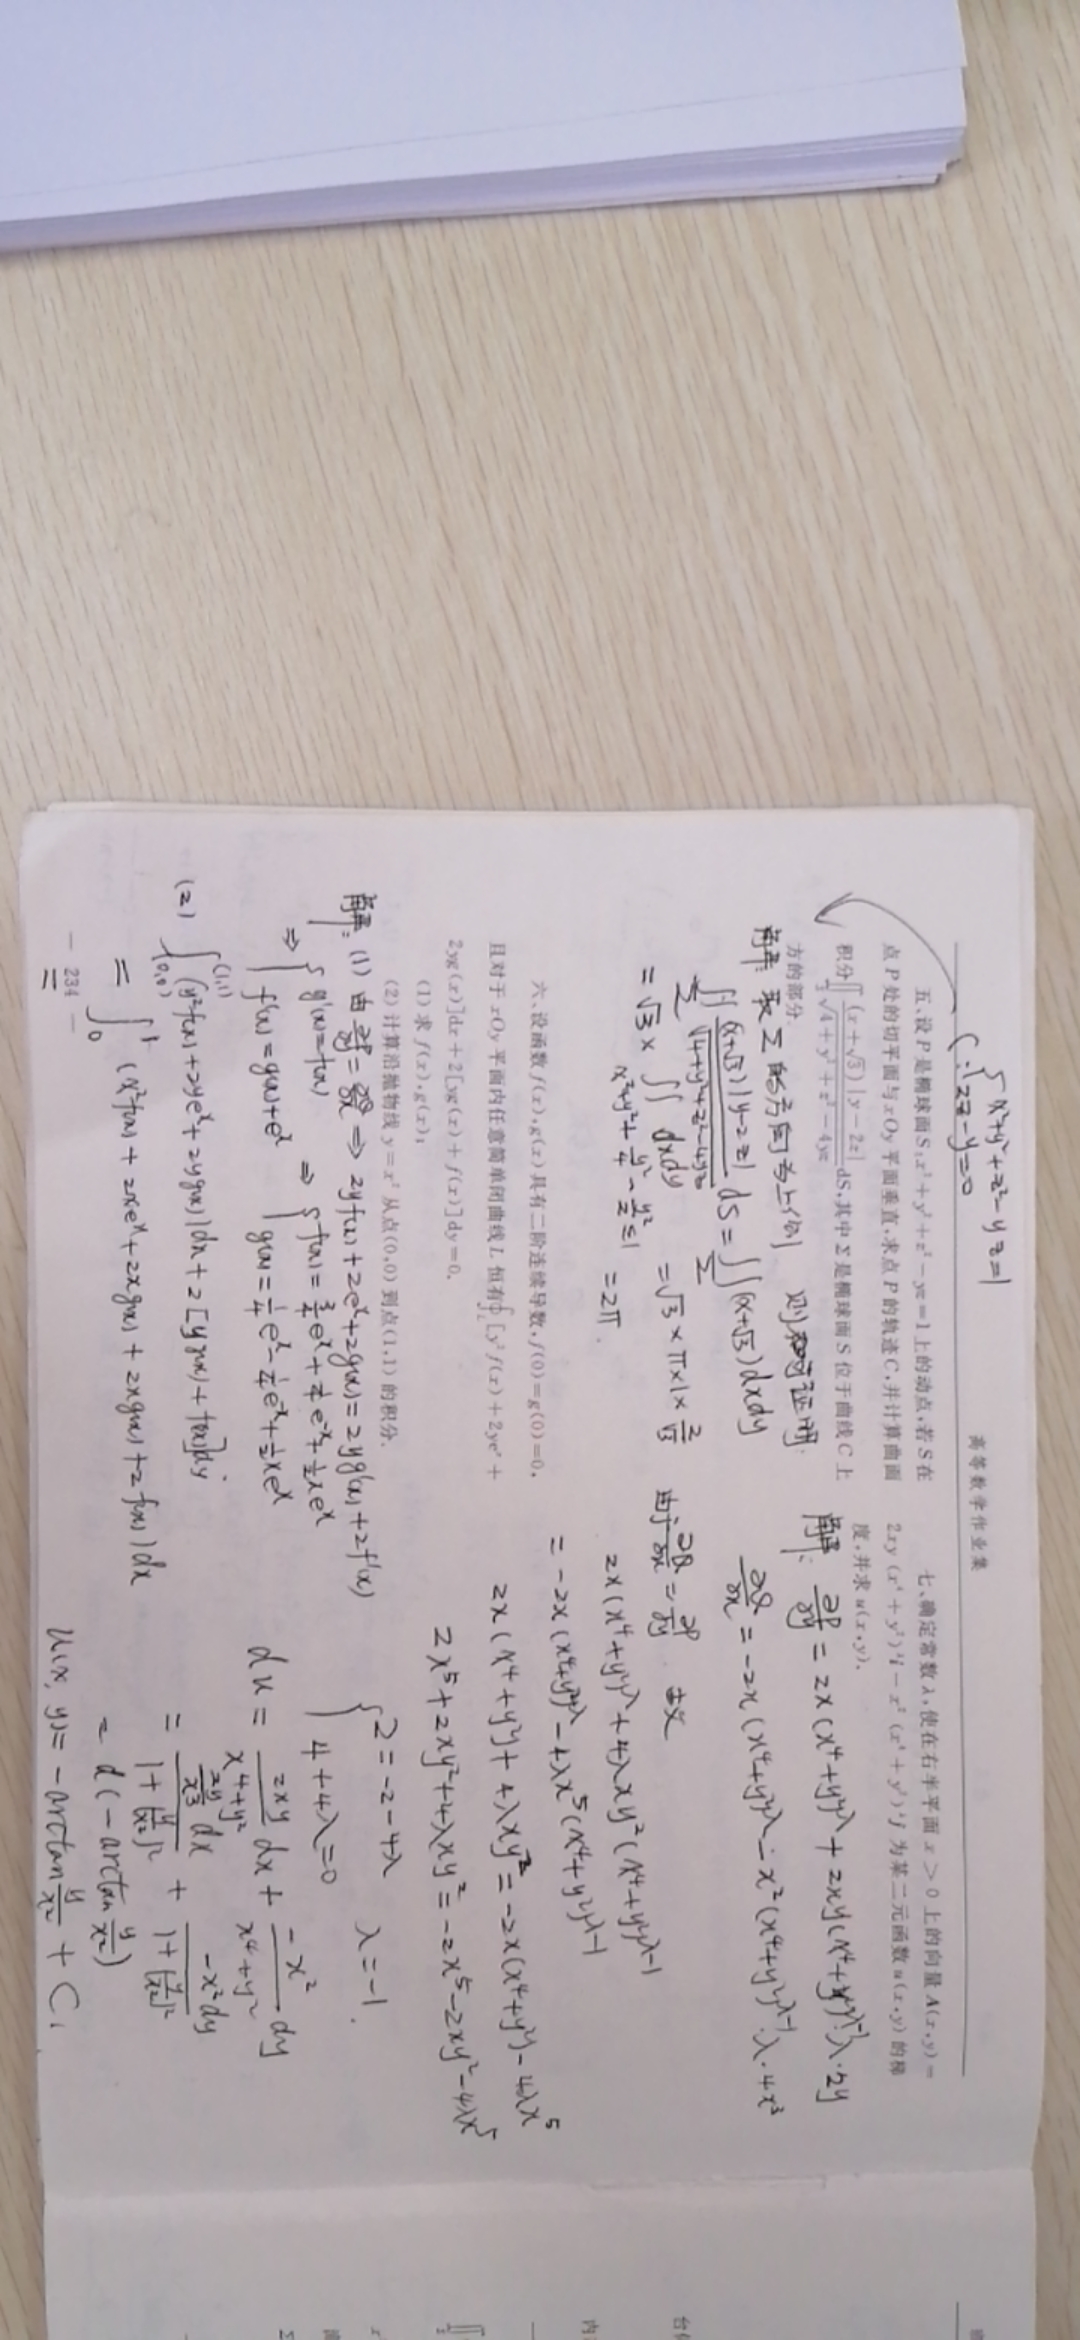 C:{x²+y²+z²-yz=1
2z-y=0
高等数学作业集
五、设P是椭球面S:x²+y²+z²-yz=1上的动点,若S在
点P处的切平面与xOy平面垂直,求点P的轨迹C,并计算曲面
积分∬_Σ (x+√3)|y-2z|/√(4+y²+z²-4yz) dS,其中Σ是椭球面S位于曲线C上
方的部分.
解:取Σ的方向为上侧 则 可证明.
∬_Σ (x+√3)|y-2z|/√(4+y²+z²-4yz) dS = ∬_Σ (x+√3)dxdy
= √3 × ∬_{x²+y²+y²/4-y²/2≤1} dxdy = √3×π×1×2/√3
= 2π.
六、设函数f(x),g(x)具有二阶连续导数,f(0)=g(0)=0,
且对于xOy平面内任意简单闭曲线L恒有∮_L[y²f(x)+2yeˣ+
2yg(x)]dx+2[yg(x)+f(x)]dy=0.
(1)求f(x),g(x);
(2)计算沿抛物线y=x²从点(0,0)到点(1,1)的积分.
解:(1)由∂P/∂y=∂Q/∂x ⇒ 2yf(x)+2eˣ+2g(x)=2yg'(x)+2f'(x)
⇒ {g'(x)=f(x) ⇒ {f(x)=3/4eˣ+1/4e⁻ˣ+1/2xeˣ
f'(x)=g(x)+eˣ g(x)=1/4eˣ-1/4e⁻ˣ+1/2xeˣ
(2) ∫_(0,0)^(1,1) (y²f(x)+2yeˣ+2yg(x))dx+2[yg(x)+f(x)]dy
= ∫_0^1 (x²f(x)+2xeˣ+2xg(x)+2xg(x)+2f(x))dx
— 234 —
=
七、确定常数λ,使在右半平面x>0上的向量A(x,y)=
2xy(x⁴+y²)^λ i-x²(x⁴+y²)^λ j为某二元函数u(x,y)的梯
度,并求u(x,y).
解: ∂P/∂y = 2x(x⁴+y²)^λ+2xy(x⁴+y²)^(λ-1)·λ·2y
∂Q/∂x = -2x(x⁴+y²)^λ-x²(x⁴+y²)^(λ-1)·λ·4x³
由于∂Q/∂x=∂P/∂y.故
2x(x⁴+y²)^λ+4λxy²(x⁴+y²)^(λ-1)
= -2x(x⁴+y²)^λ-4λx⁵(x⁴+y²)^(λ-1)
2x(x⁴+y²)+4λxy²=-2x(x⁴+y²)-4λx⁵
2x⁵+2xy²+4λxy²=-2x⁵-2xy²-4λx⁵
{2=-2-4λ λ=-1.
4+4λ=0
du = 2xy/(x⁴+y²) dx + -x²/(x⁴+y²) dy
= (2y/x³ dx)/(1+(y/x²)²) + (-x²dy)/(1+(y/x²)²)
= d(-arctan y/x²)
u(x,y)=-arctan y/x² + C.